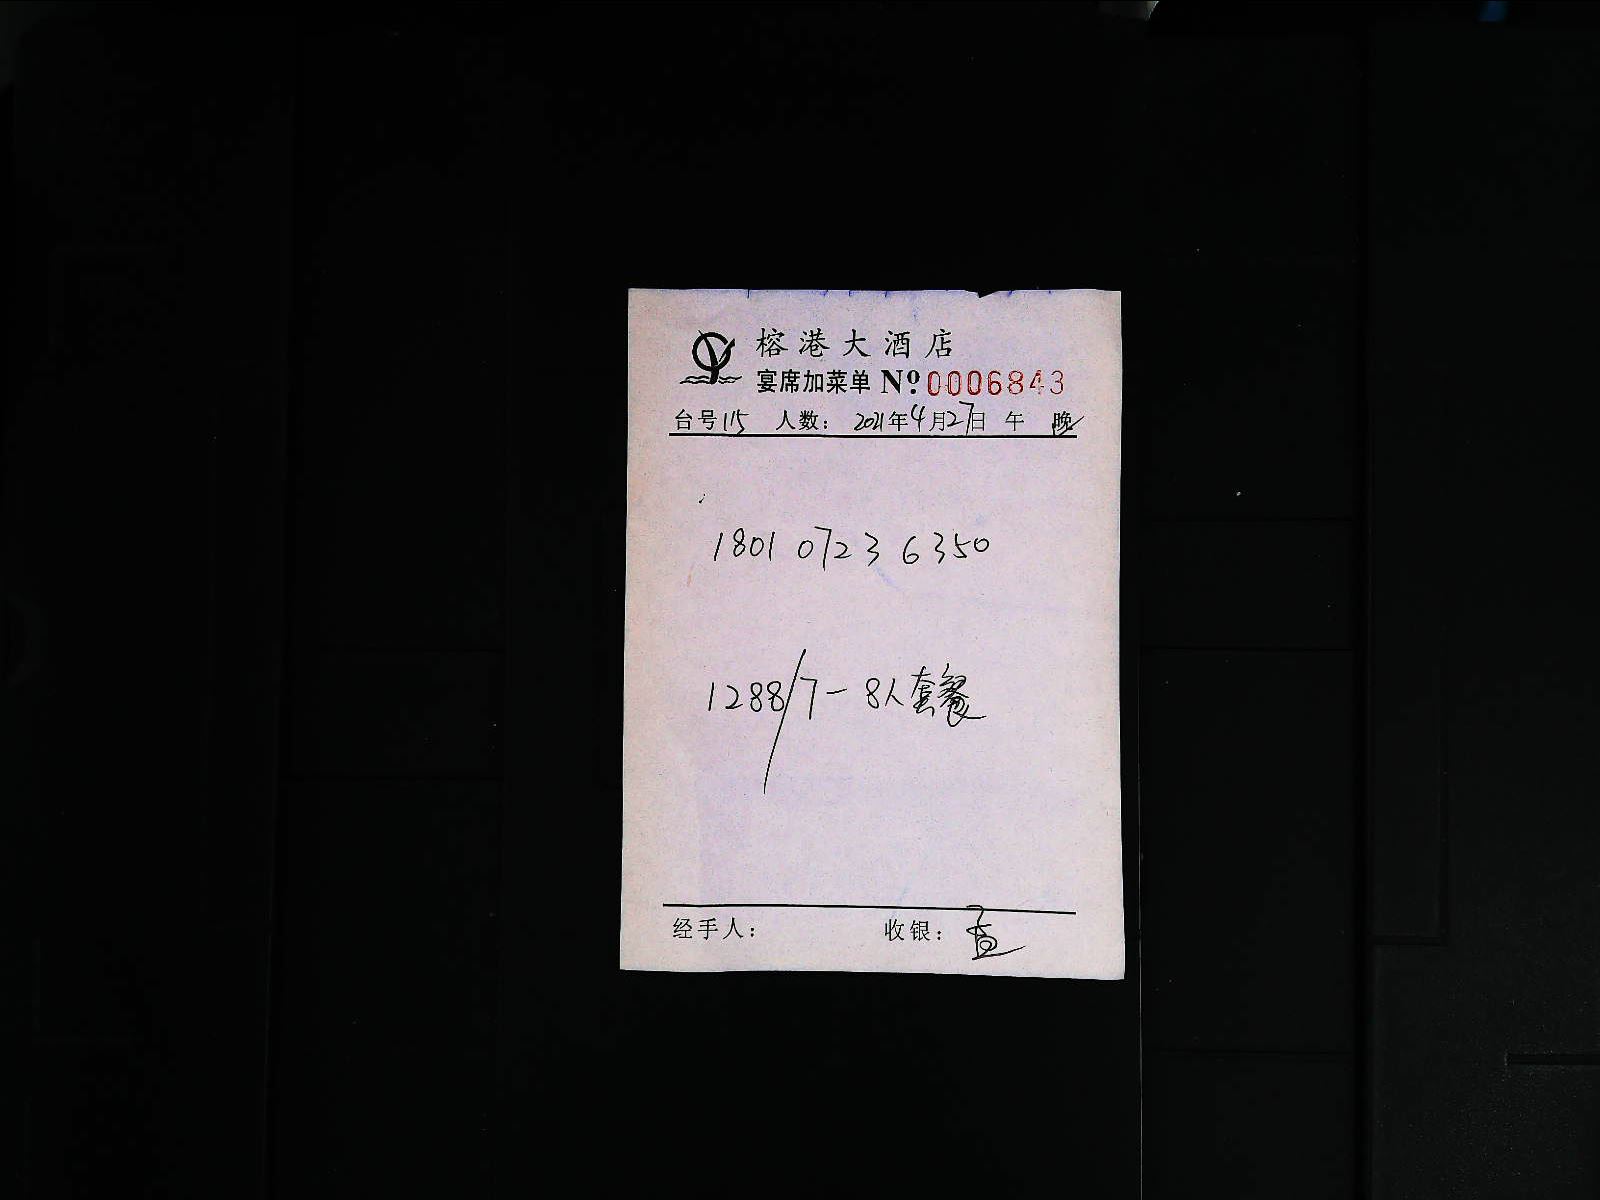 榕港大酒店
宴席加菜单 Nº:0006843
台号115 人数: 2021年4月27日 午 晚
1801 0723 6350
1288/7-8人套餐
经手人: 收银: